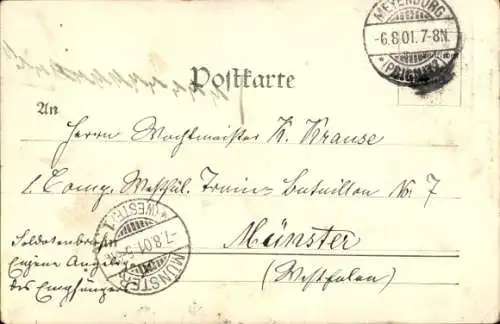 MEYENBURG
-6.8.01.7-8N.
*(PRIGNITZ)
Postkarte
An
Herrn Wachtmeister K. Krause
1. Comp. Westfäl. Train-Bataillon Nr. 7
Münster
(Westfalen)
MÜNSTER
-7.8.01.
*(WESTF.)
Soldatenbrief
Eigene Angelegen
des Empfängers